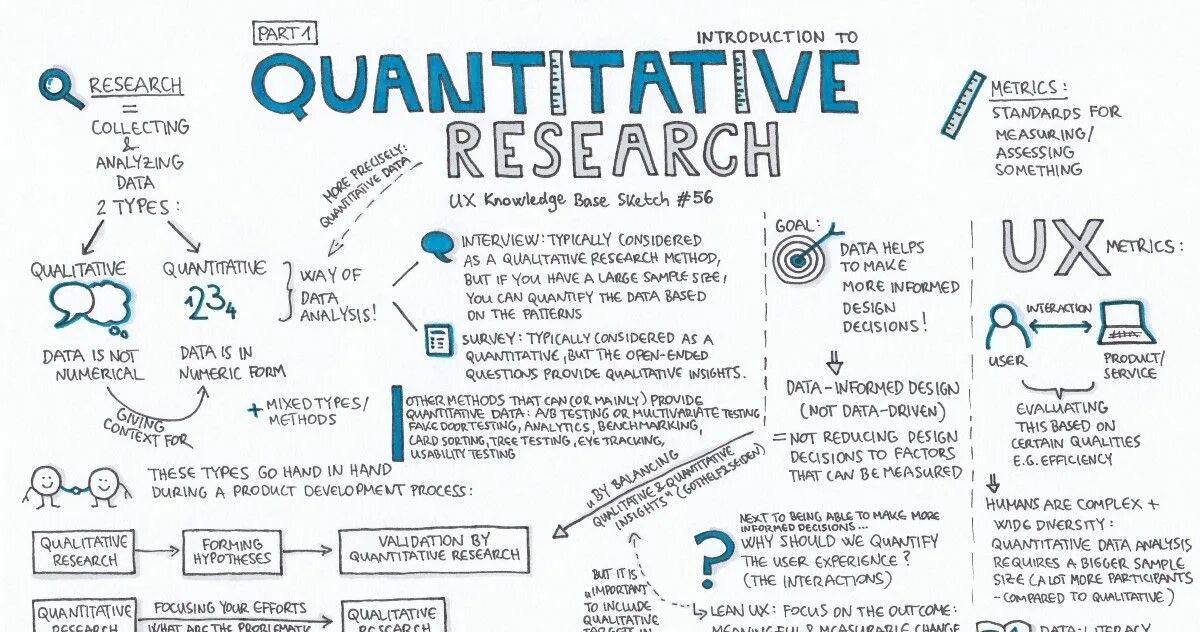 PART 1
INTRODUCTION TO
QUANTITATIVE
RESEARCH
UX Knowledge Base Sketch #56
RESEARCH
=
COLLECTING
&
ANALYZING
DATA
2 TYPES:
QUALITATIVE
DATA IS NOT
NUMERICAL
QUANTITATIVE
1234
DATA IS IN
NUMERIC FORM
GIVING
CONTEXT FOR
+ MIXED TYPES/
METHODS
MORE PRECISELY:
QUANTITATIVE DATA
WAY OF
DATA
ANALYSIS!
INTERVIEW: TYPICALLY CONSIDERED
AS A QUALITATIVE RESEARCH METHOD,
BUT IF YOU HAVE A LARGE SAMPLE SIZE,
YOU CAN QUANTIFY THE DATA BASED
ON THE PATTERNS
SURVEY: TYPICALLY CONSIDERED AS A
QUANTITATIVE, BUT THE OPEN-ENDED
QUESTIONS PROVIDE QUALITATIVE INSIGHTS.
OTHER METHODS THAT CAN (OR MAINLY) PROVIDE
QUANTITATIVE DATA: A/B TESTING OR MULTIVARIATE TESTING
FAKE DOOR TESTING, ANALYTICS, BENCHMARKING,
CARD SORTING, TREE TESTING, EYE TRACKING,
USABILITY TESTING
THESE TYPES GO HAND IN HAND
DURING A PRODUCT DEVELOPMENT PROCESS:
QUALITATIVE
RESEARCH
FORMING
HYPOTHESES
VALIDATION BY
QUANTITATIVE RESEARCH
QUANTITATIVE
RESEARCH
FOCUSING YOUR EFFORTS
WHAT ARE THE PROBLEMATIC
QUALITATIVE
RESEARCH
GOAL:
DATA HELPS
TO MAKE
MORE INFORMED
DESIGN
DECISIONS!
DATA-INFORMED DESIGN
(NOT DATA-DRIVEN)
= NOT REDUCING DESIGN
DECISIONS TO FACTORS
THAT CAN BE MEASURED
"BY BALANCING
QUALITATIVE & QUANTITATIVE
INSIGHTS" (GOTHELF & SEIDEN)
BUT IT IS
"IMPORTANT
TO INCLUDE
QUALITATIVE
TARGETS IN
?
NEXT TO BEING ABLE TO MAKE MORE
INFORMED DECISIONS...
WHY SHOULD WE QUANTIFY
THE USER EXPERIENCE?
(THE INTERACTIONS)
LEAN UX: FOCUS ON THE OUTCOME:
MEANINGFUL & MEASURABLE CHANGE
METRICS:
STANDARDS FOR
MEASURING/
ASSESSING
SOMETHING
UX METRICS:
USER
INTERACTION
PRODUCT/
SERVICE
EVALUATING
THIS BASED ON
CERTAIN QUALITIES
E.G. EFFICIENCY
HUMANS ARE COMPLEX +
WIDE DIVERSITY:
QUANTITATIVE DATA ANALYSIS
REQUIRES A BIGGER SAMPLE
SIZE (A LOT MORE PARTICIPANTS
- COMPARED TO QUALITATIVE)
DATA-LITERACY